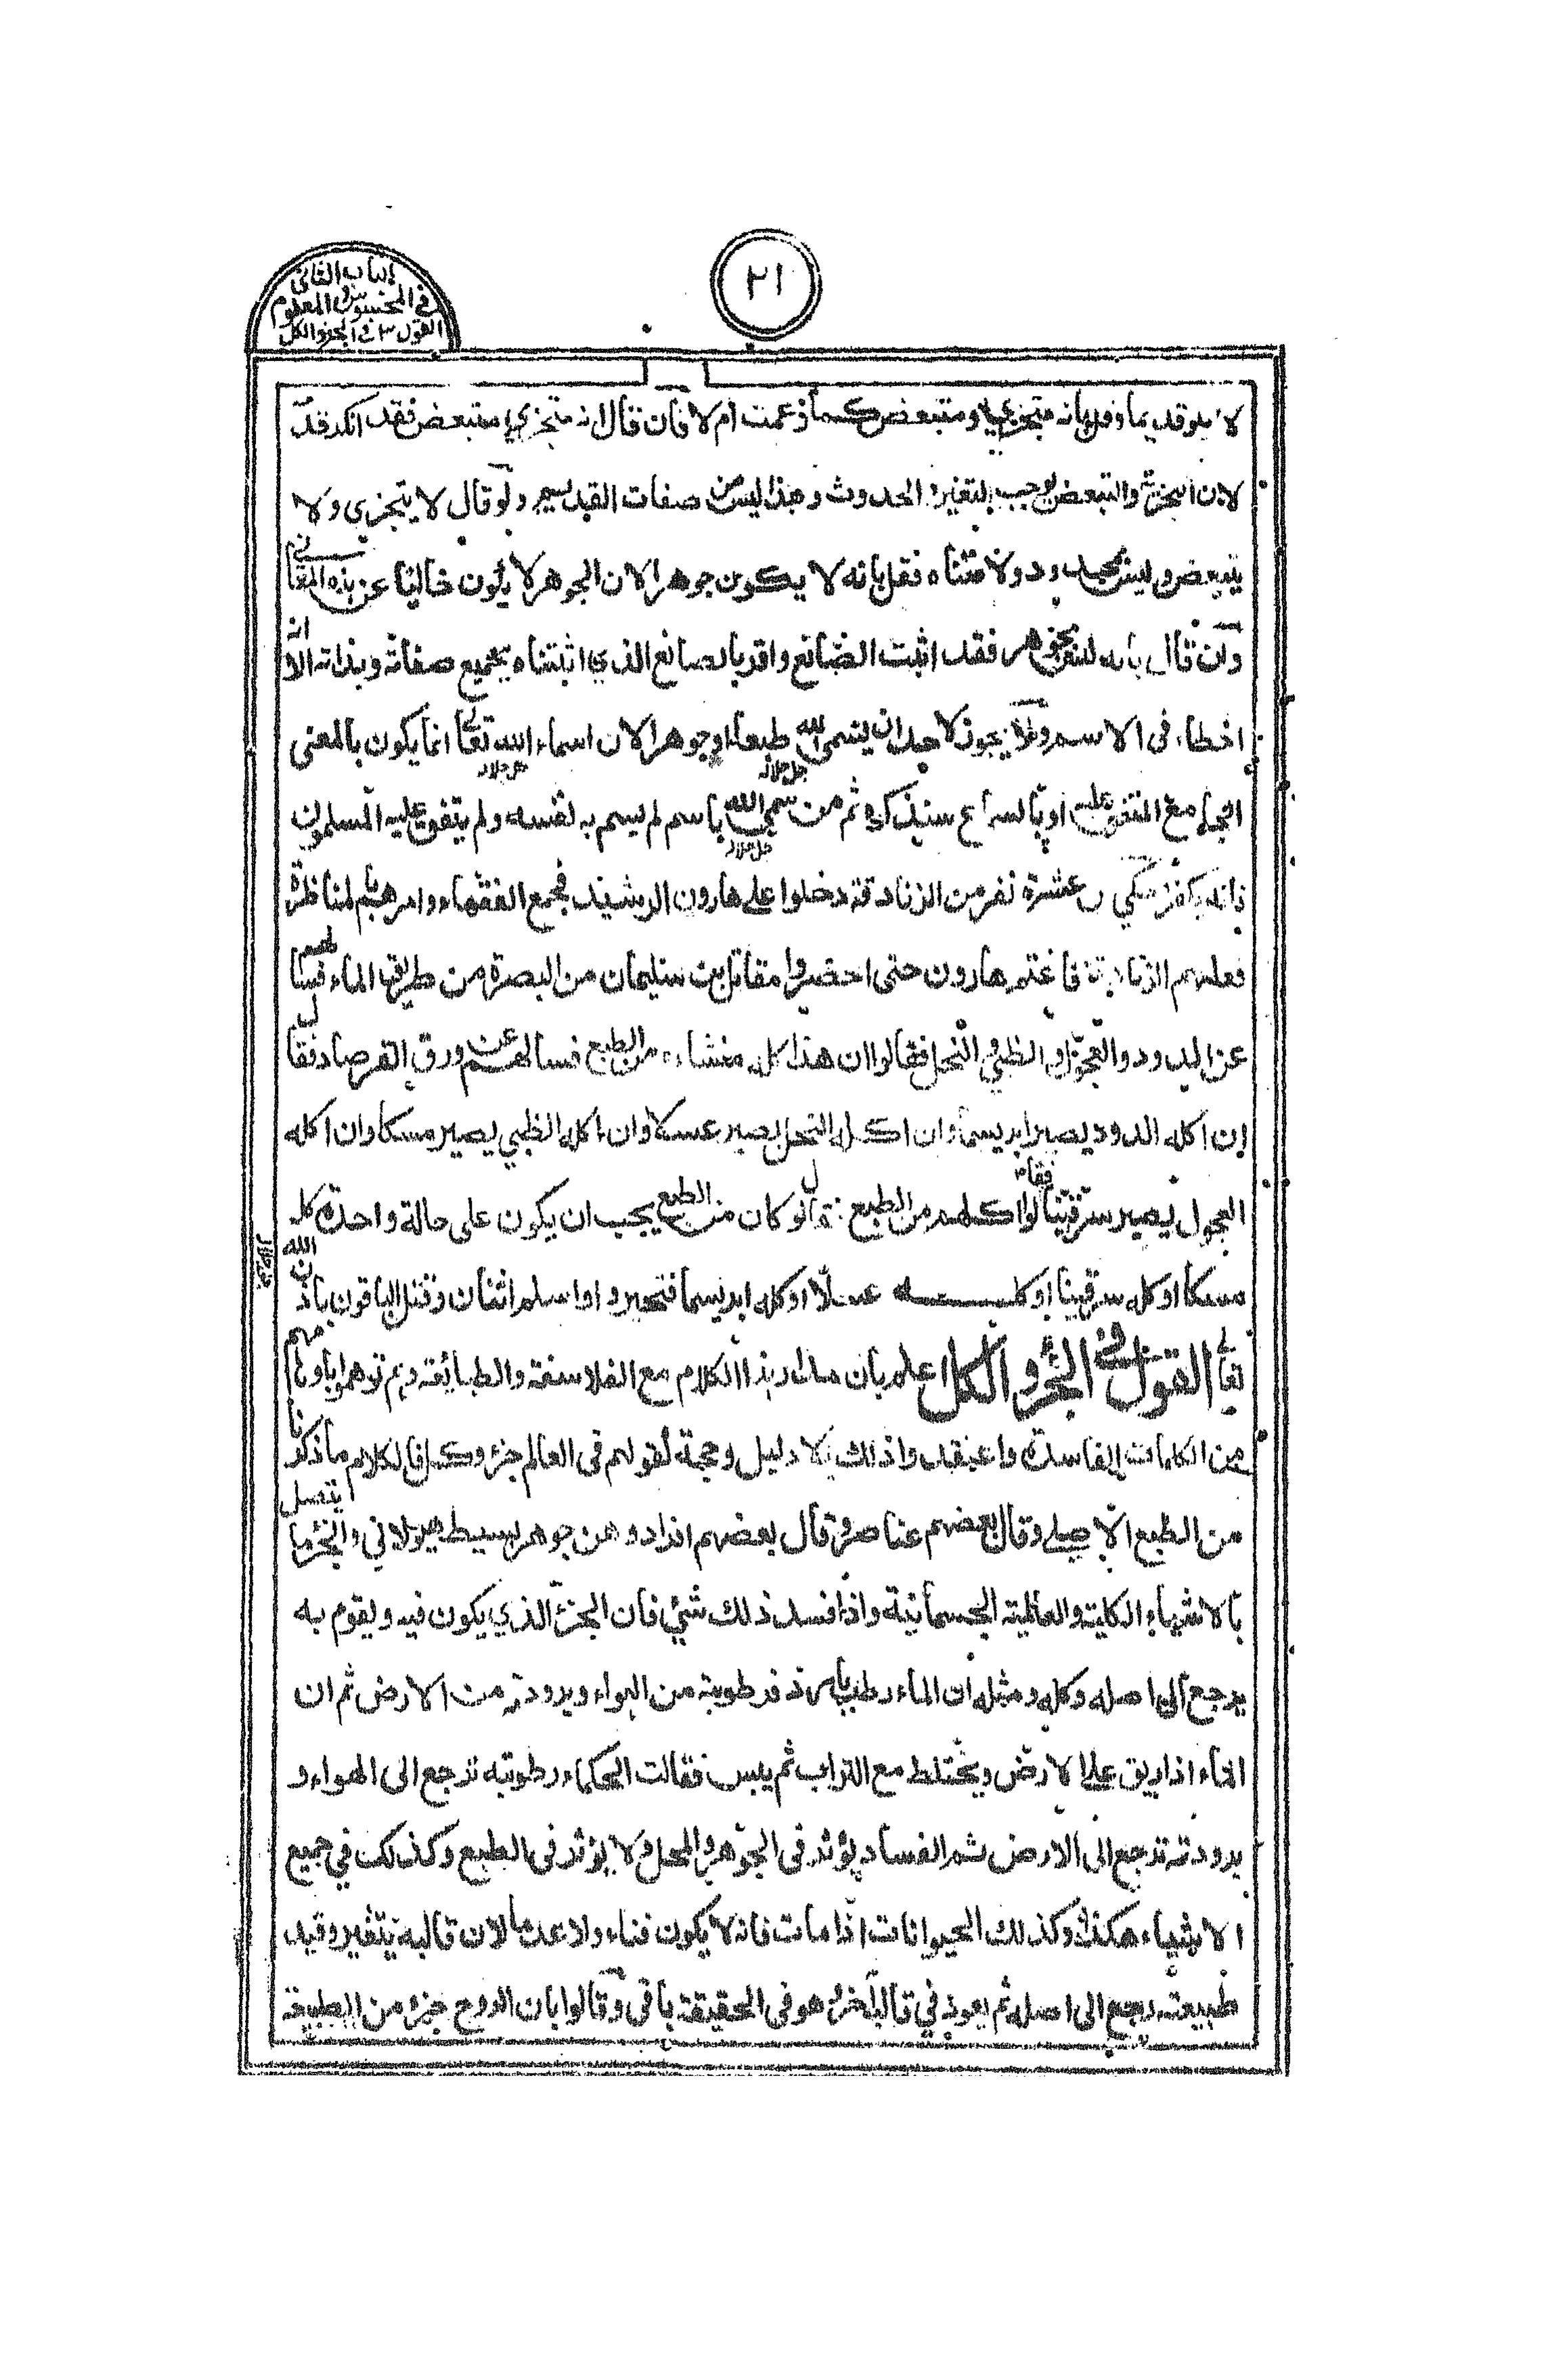 ٢١
الباب الثانى
فى المحسوس و المعلوم
القول ٣ فى الجزو الكل
بانه متجزى ومتبعض كما زعمت ام لا فان قال انه متجزى متبعض فقد انكر قد
لان التجزى والتبعض يوجب التغير و الحدوث وهذا ليس من صفات القديم ولو قال لا يتجزى ولا
يتبعض وليس بمحدود ولا متناه فقل بانه لا يكون جوهرا لان الجوهر لا يكون خاليا عن هذه المعانى
وان قال بانه ليس بجوهر فقد اثبت الصانع واقر بالصانع الذي اثبتناه بجميع صفاته وبذاته الا انه
اخطاء فى الاسم ولا يجوز لاحد ان يسمى الله جل جلاله طبعا او جوهرا لان اسماء الله تعا جل جلاله انما يكون بالمعنى
مع المتفق عليه او بالسماع سنذكره ثم من سمى الله جل جلاله باسم لم يسم به نفسه ولم يتفق عليه المسلمون
فانه يكفر حكي ان عشرة نفر من الزنادقة دخلوا على هارون الرشيد فجمع الفقهاء وامرهم لمناظرة
الزنادقة فاغتم هارون حتى احضروا مقاتل بن سليمان من البصرة من طريق الماء فسالهم
عن الدود والعجول و الظبي و النحل فقالوا ان هذا كله منشاء من الطبع فسالهم عن ورق الفرصاد فقال
ان اكله الدود يصير ابريسما وان اكله النحل يصير عسلا وان اكله الظبي يصير مسكا وان اكله
العجول يصير سرقينا فقالوا كلهم من الطبع فقال لو كان من الطبع يجب ان يكون على حالة واحدة كله
مسكا او كله سرقينا او كله عسلا او كله ابريسما فتحيروا واسلم اثنان وقتل الباقون باذن الله جل جلاله
تعا القول فى الجزو الكل اعلم بان هذا الكلام مع الفلاسفة والطبائعة
من الكلمات الفاسدة واعتقدوا ذلك بلا دليل وحجة لقولهم فى العالم جزو وكل فالكلام ما ذكرنا
من الطبع الاصلي وقال بعضهم عناصر وقال بعضهم افراد و هن جوهر بسيط هيولانى والجزما يتصل
بالاشياء الكلية والعالمية الجسمانية واذا فسد ذلك شئ فان الجزء الذي يكون فيه ويقوم به
يرجع الى اصله وكله ومثله ان الماء رطب بارد فرطوبته من الهواء وبرودته من الارض ثم ان
الماء اذا اريق على الارض ويختلط مع التراب ثم يبس فقالت الحكماء رطوبته ترجع الى الهواء و
برودته ترجع الى الارض ثم الفساد يؤثر فى الجوهر والمحل ولا يؤثر فى الطبع وكذلك في جميع
الاشياء هكذا وكذلك الحيوانات اذا مات فانه لا يكون فناء ولا عدما لان قالبه يتغير وقيد
طبيعته يرجع الى اصله ثم يعود في قالب اخر و هو فى الحقيقة باقى وقالوا بان الروح جزء من الطبيعة